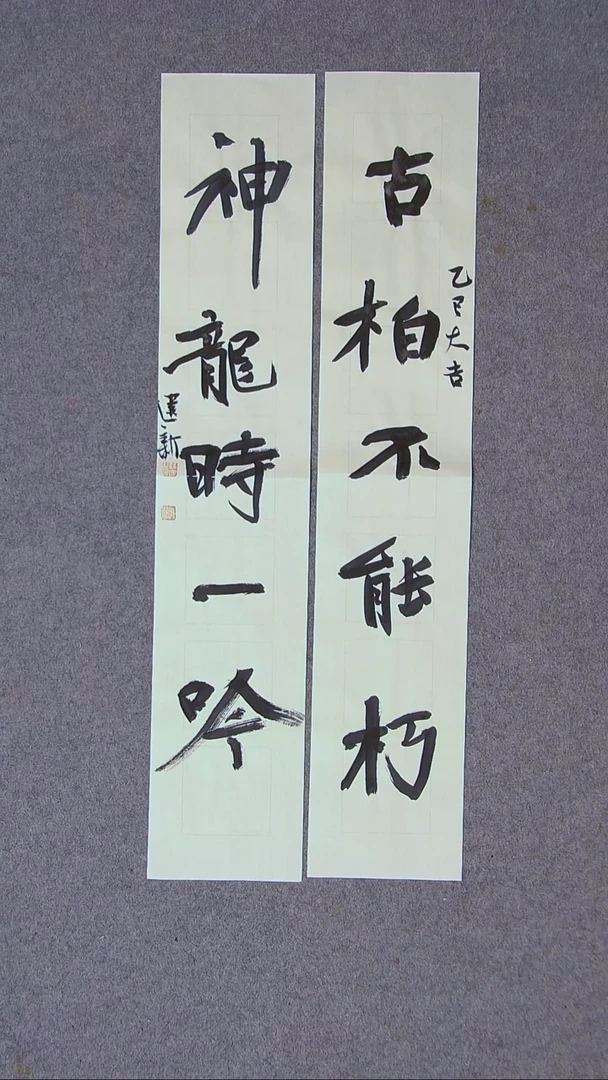 古柏不能朽
乙巳大吉
神龍時一吟
建新